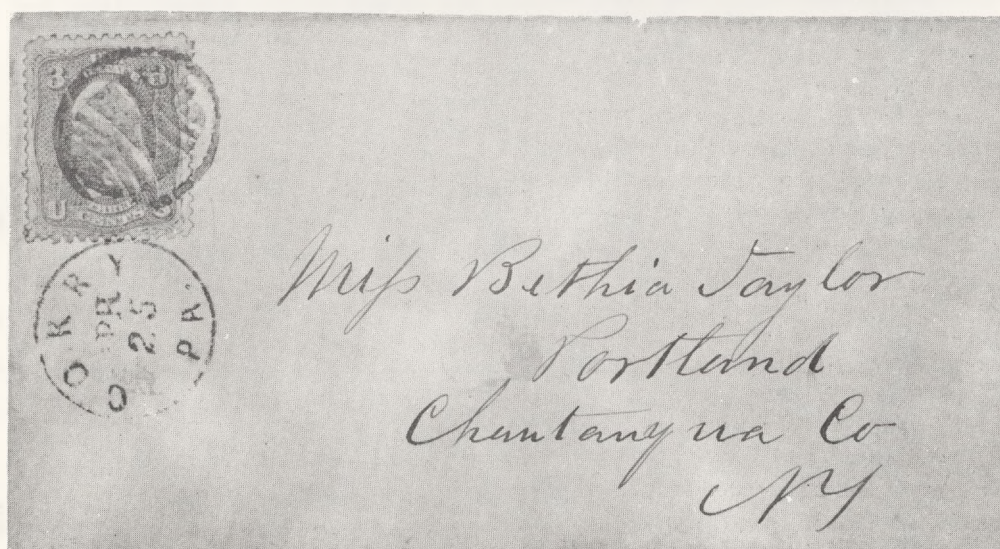 3 3
U S
CORRY PA.
APR
25
Miss Bethia Taylor
Portland
Chautauqua Co
NY